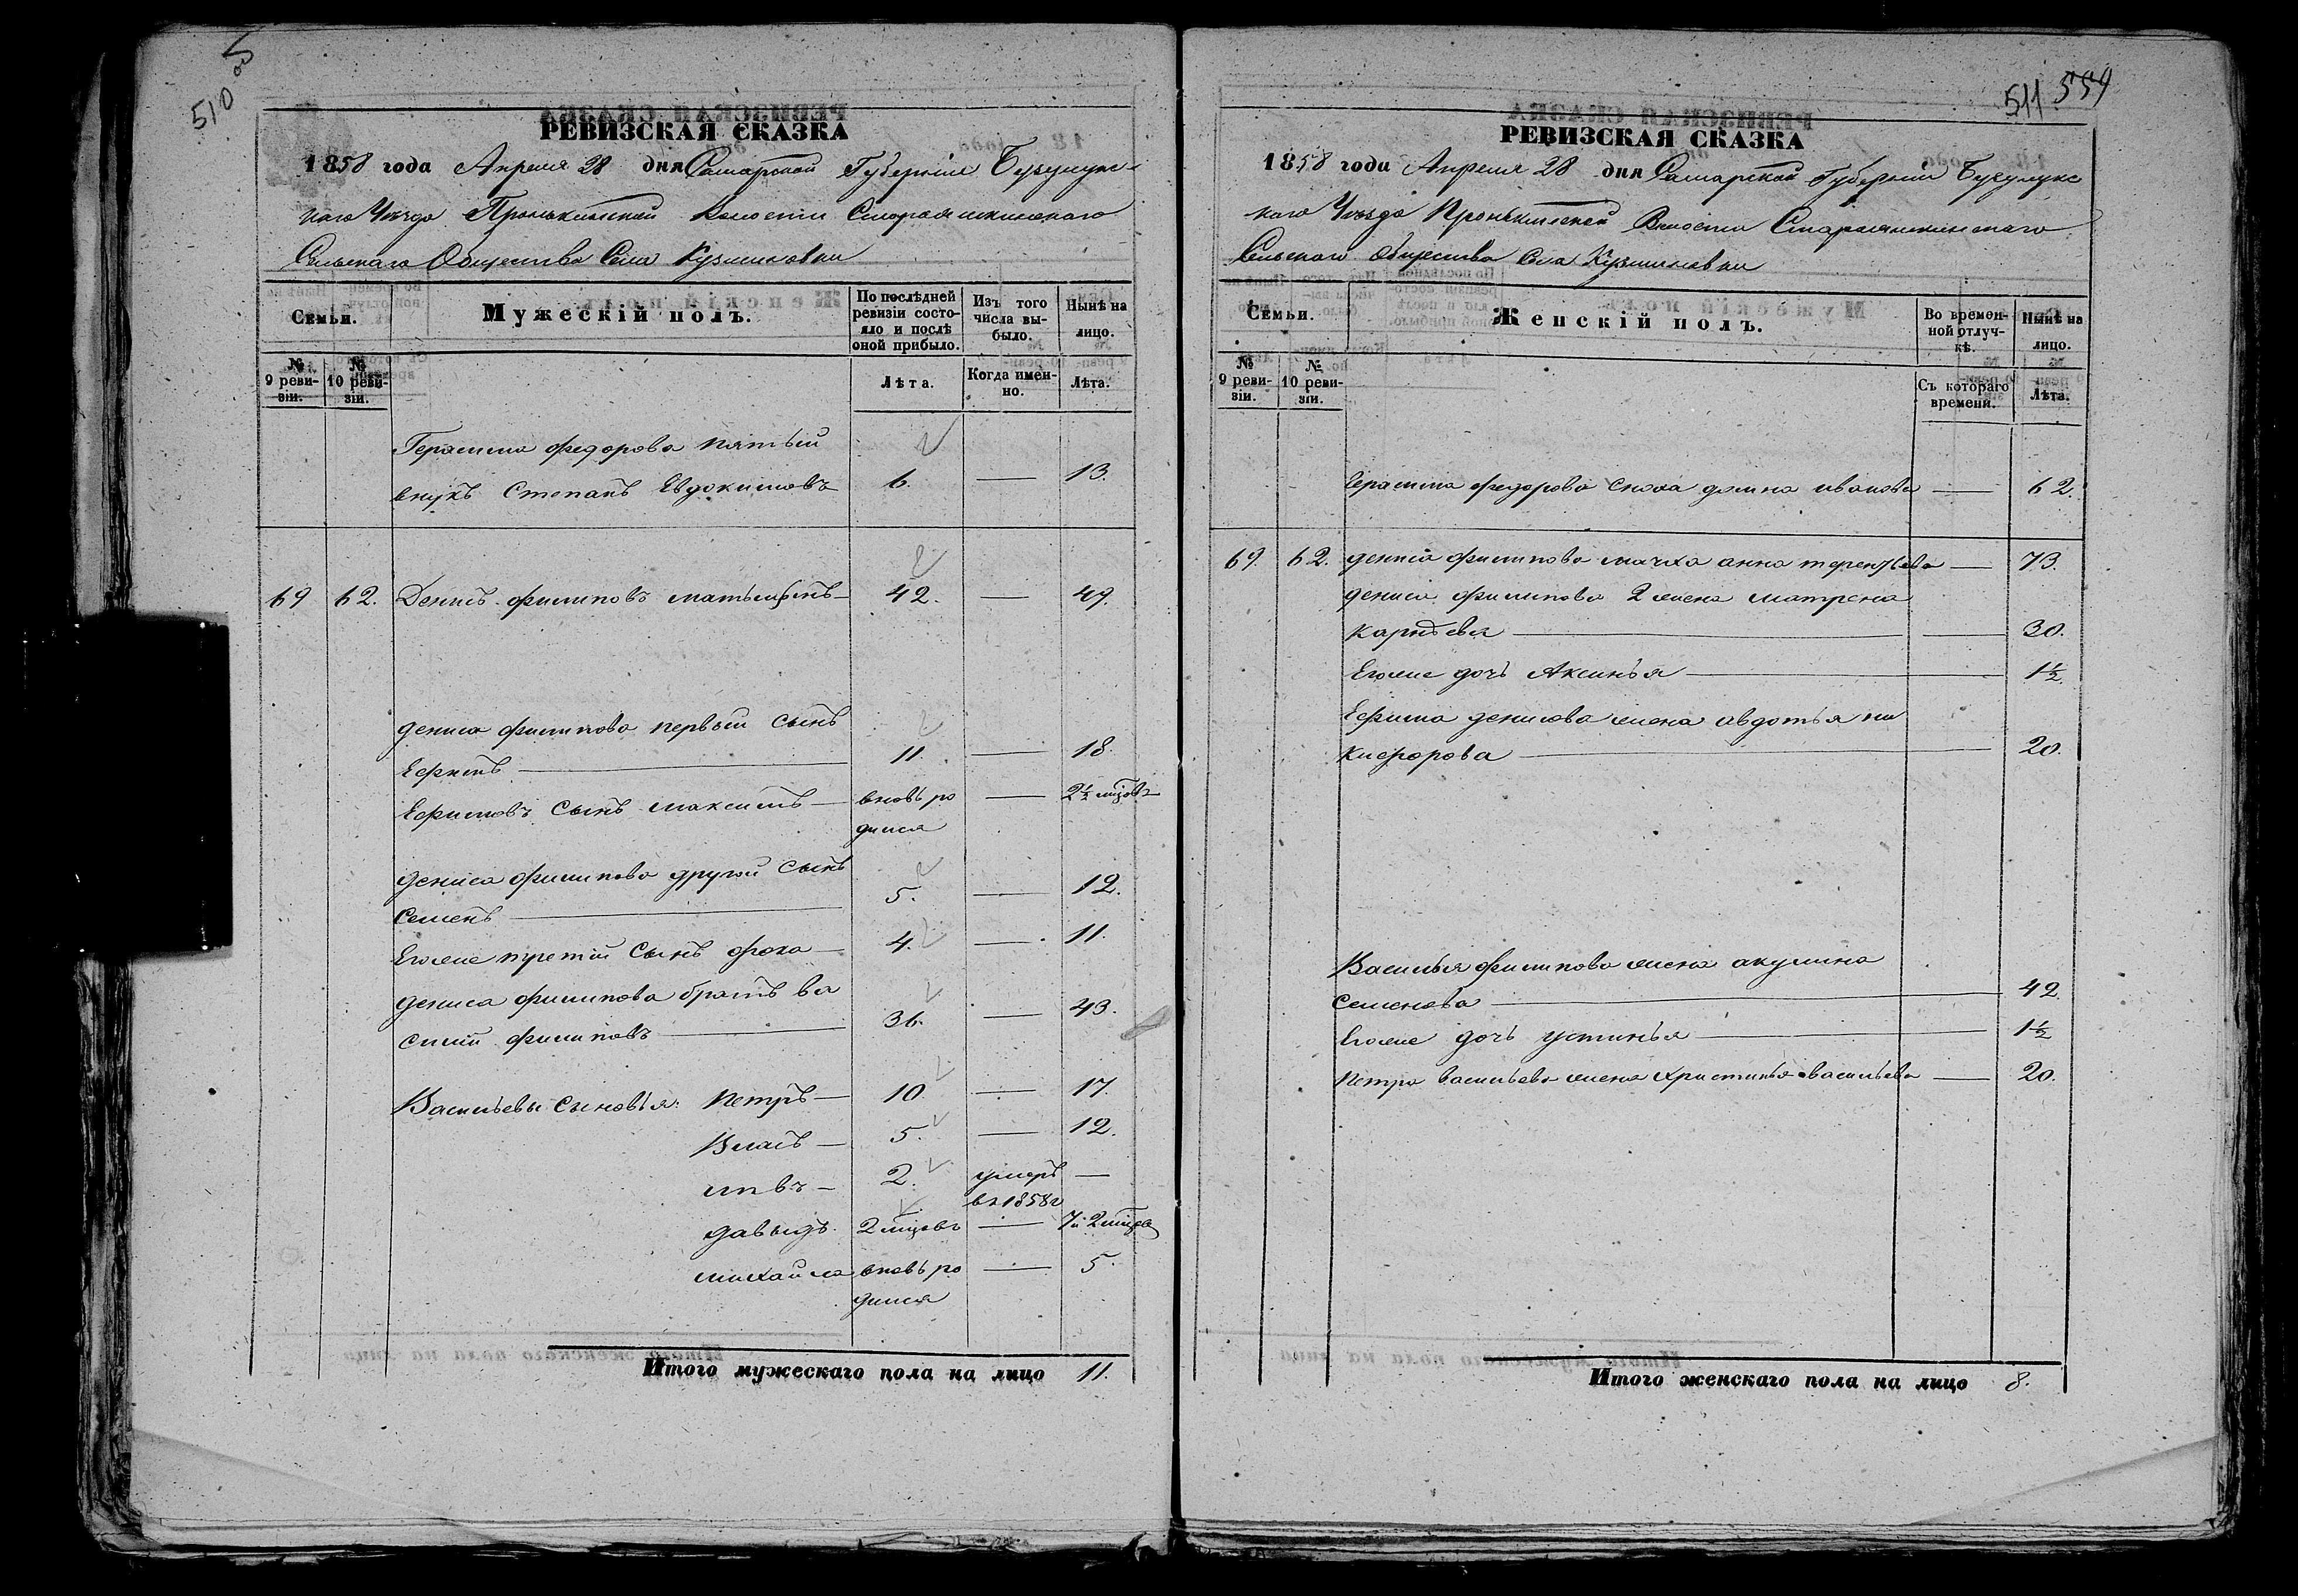 510
РЕВИЗСКАЯ СКАЗКА
1858 года Апреля 28 дня Самарской Губернiи Бузулукс-
каго Уѣзда Пронькинской Волости Староякшинского
Сельскаго Общества Села Кузминовки
Семьи.
Мужескiй полъ.
По послѣдней ревизiи состояло и послѣ оной прибыло.
Изъ того числа выбыло.
Нынѣ на лицо.
№ 9 ревизiи.
№ 10 ревизiи.
Лѣта.
Когда именно.
Лѣта.
Герасима федорова пятый
внукъ Степанъ Евдокимовъ 6. — 13.
69 62. Денисъ филиповъ 42. — 49.
дениса филипова первый сынъ
Ефимъ — 11. — 18.
Ефимовъ сынъ максимъ — вновь ро — 2½ мцовъ
дился
дениса филипова другой сынъ
семенъ — 5. — 12.
Егоже третiй сынъ фока — 4. — 11.
дениса филипова братъ ва
силiй филиповъ — 36. — 43.
Васильевы сыновья: Петръ — 10. — 17.
Власъ — 5. — 12.
2. умеръ —
въ 1858г
давыдъ 2 мцовъ — 7 и 2 мцов
михайла вновь ро — 5.
дился
Итого мужескаго пола на лицо 11.
511 559
РЕВИЗСКАЯ СКАЗКА
1858 года Апреля 28 дня Самарской Губернiи Бузулукс
каго Уѣзда Пронькинской Волости Староякшинскаго
Сельскаго общества Села Кузминовки
Семьи.
Женскiй полъ.
Во временной отлучкѣ.
Нынѣ на лицо.
№ 9 ревизiи.
№ 10 ревизiи.
Съ котораго времени.
Лѣта.
Герасима федорова сноха домна иванова — 62.
69. 62. дениса филипова мачха анна терентьева — 73.
дениса филипова 2 жена матрена
— 30.
Егоже дочь Аксинья — 1½.
Ефима денисова жена авдотья ни
кифорова — 20.
Василья филипова жена акулина
семенова — 42.
Егоже дочь устинья — 1½
Петра васильева жена христинья васильева — 20.
Итого женскаго пола на лицо 8.